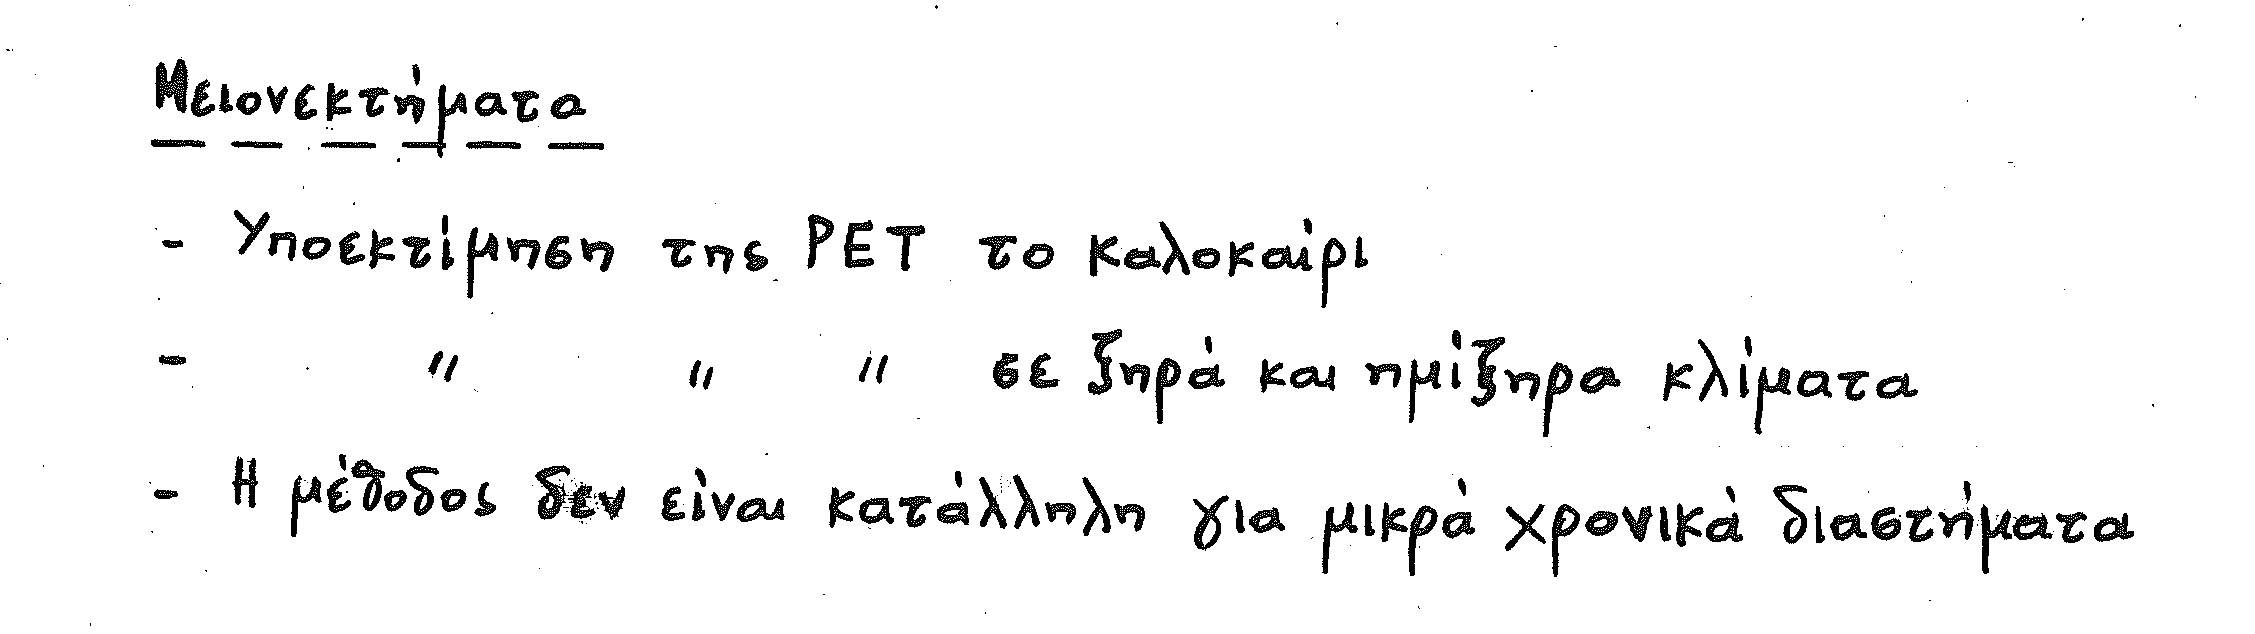 Μειονεκτήματα
- Υποεκτίμηση της PET το καλοκαίρι
- " " " σε ξηρά και ημίξηρα κλίματα
- Η μέθοδος δεν είναι κατάλληλη για μικρά χρονικά διαστήματα